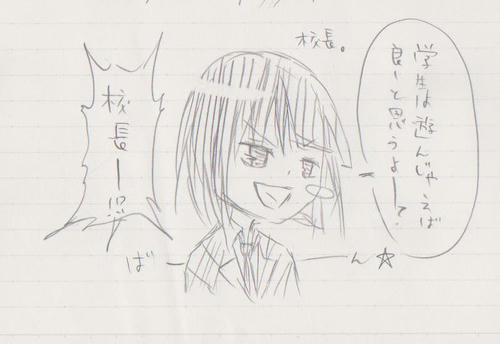 校長。
学生は遊んじゃえば
良いと思うよーって
校長ー!?
ばーん☆